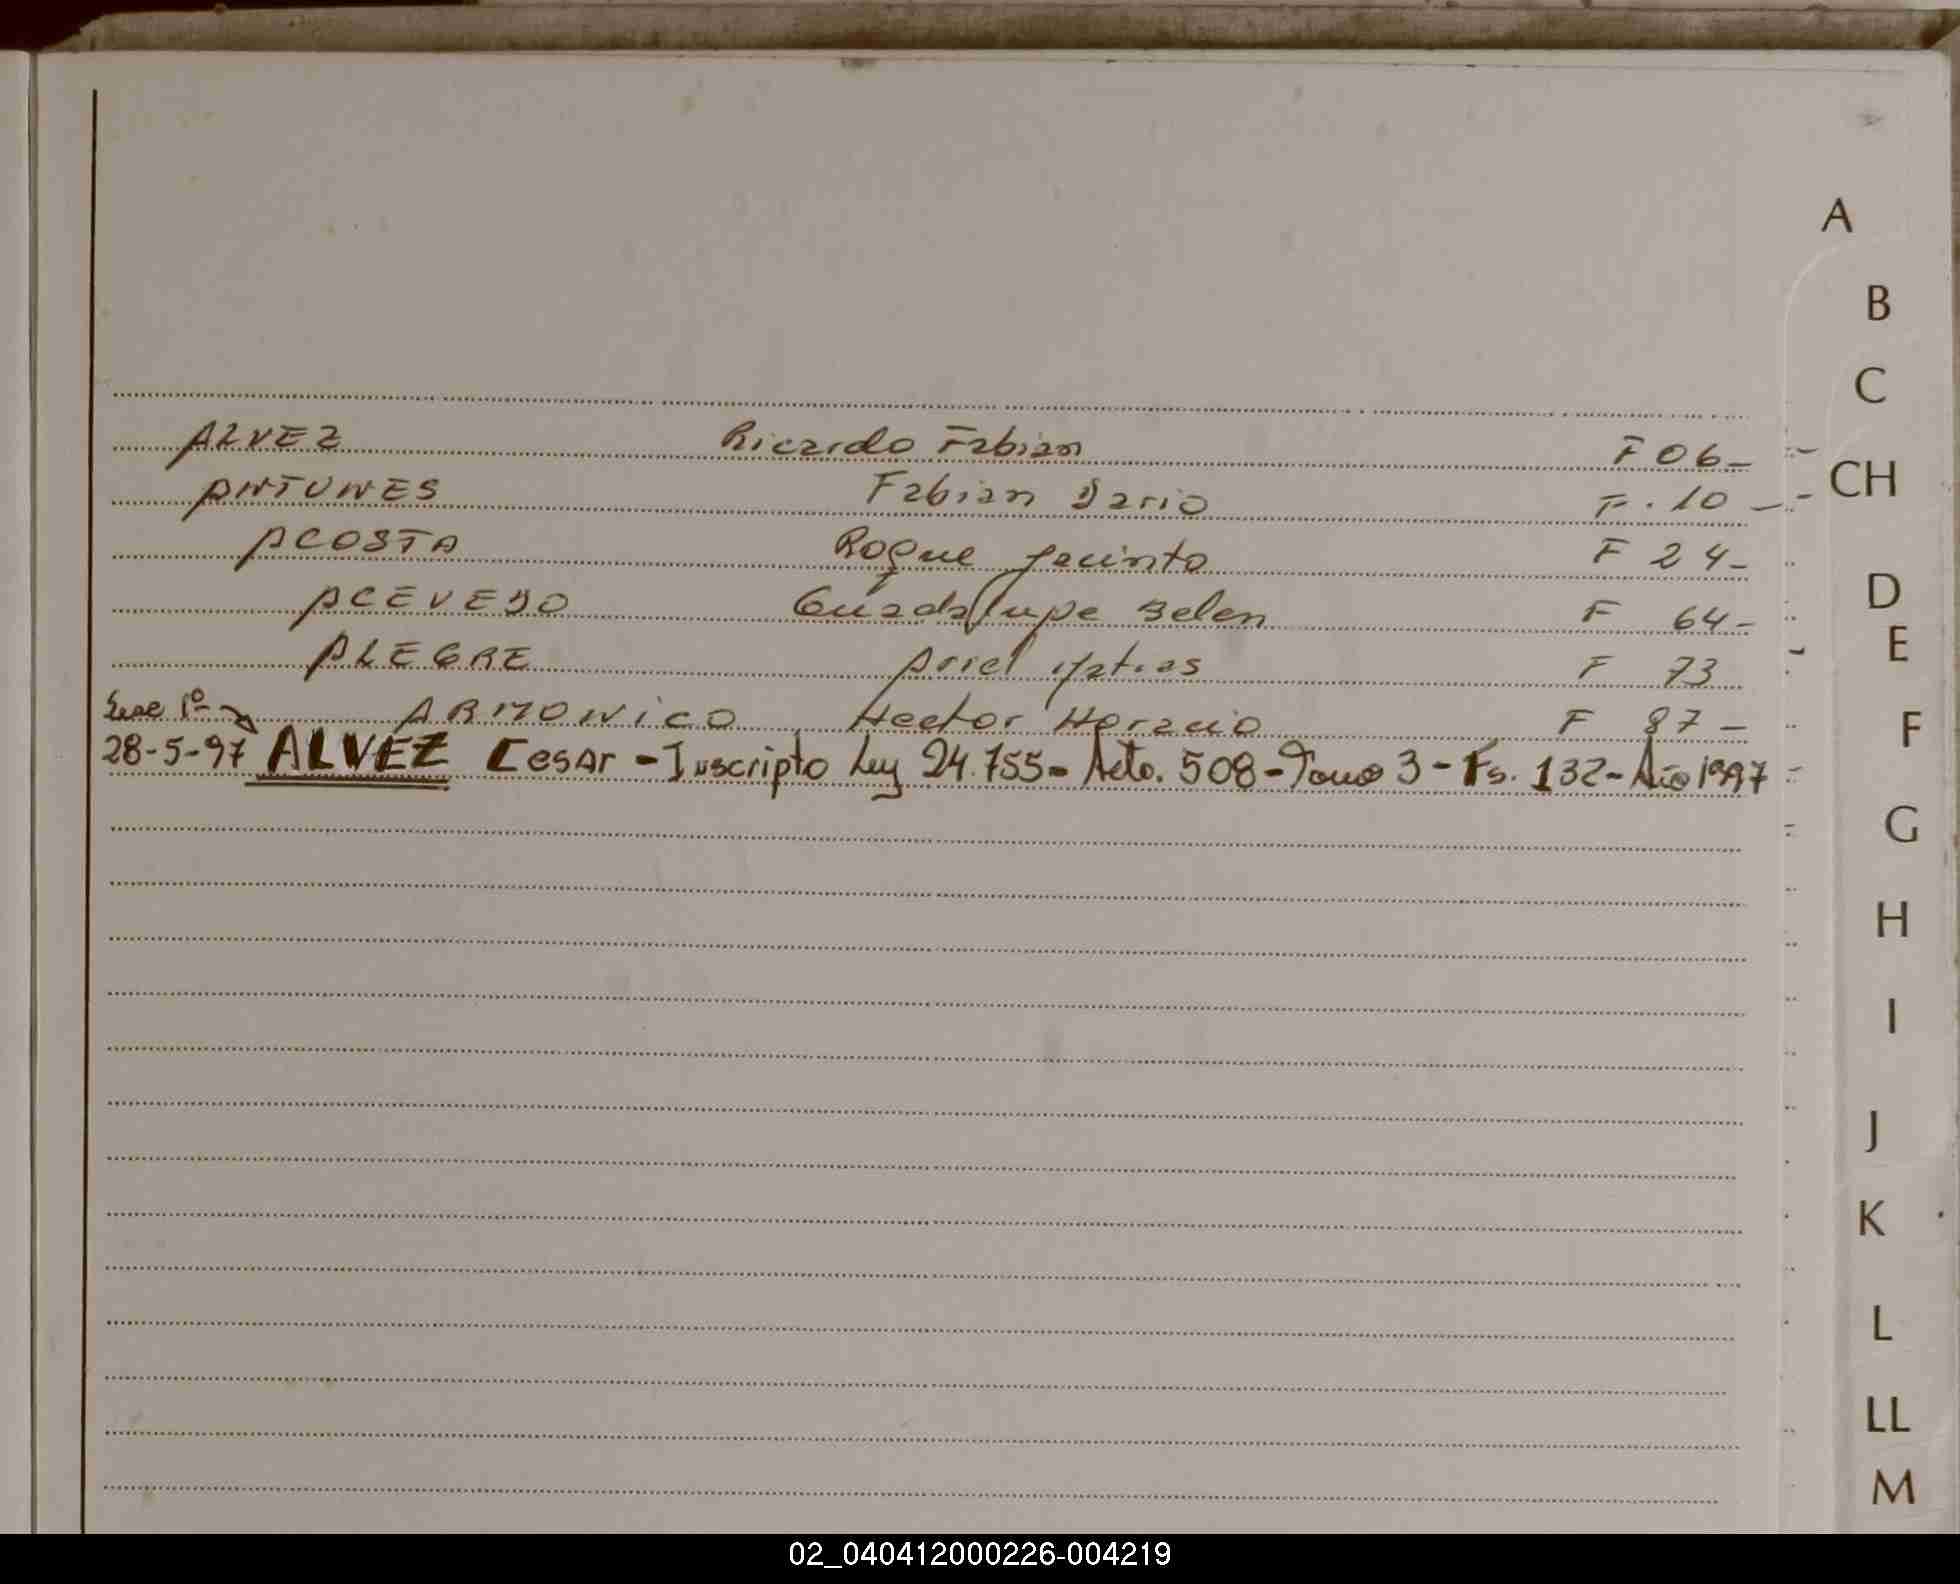 ALVEZ Ricardo Fabian F 06-
ANTUNES Fabian Dario F. 10 -
ACOSTA Roque Jacinto F 24-
ACEVEDO Guadalupe Belen F 64-
ALEGRE Ariel Matias F 73
1º ARMONICO Hector Horacio F 87 -
28-5-97 ALVEZ Cesar - Inscripto Ley 24.755- Acto. 508 - Tomo 3 - Fs. 132 - Año 1997
A
B
C
CH
D
E
F
G
H
I
J
K
L
LL
M
02_040412000226-004219